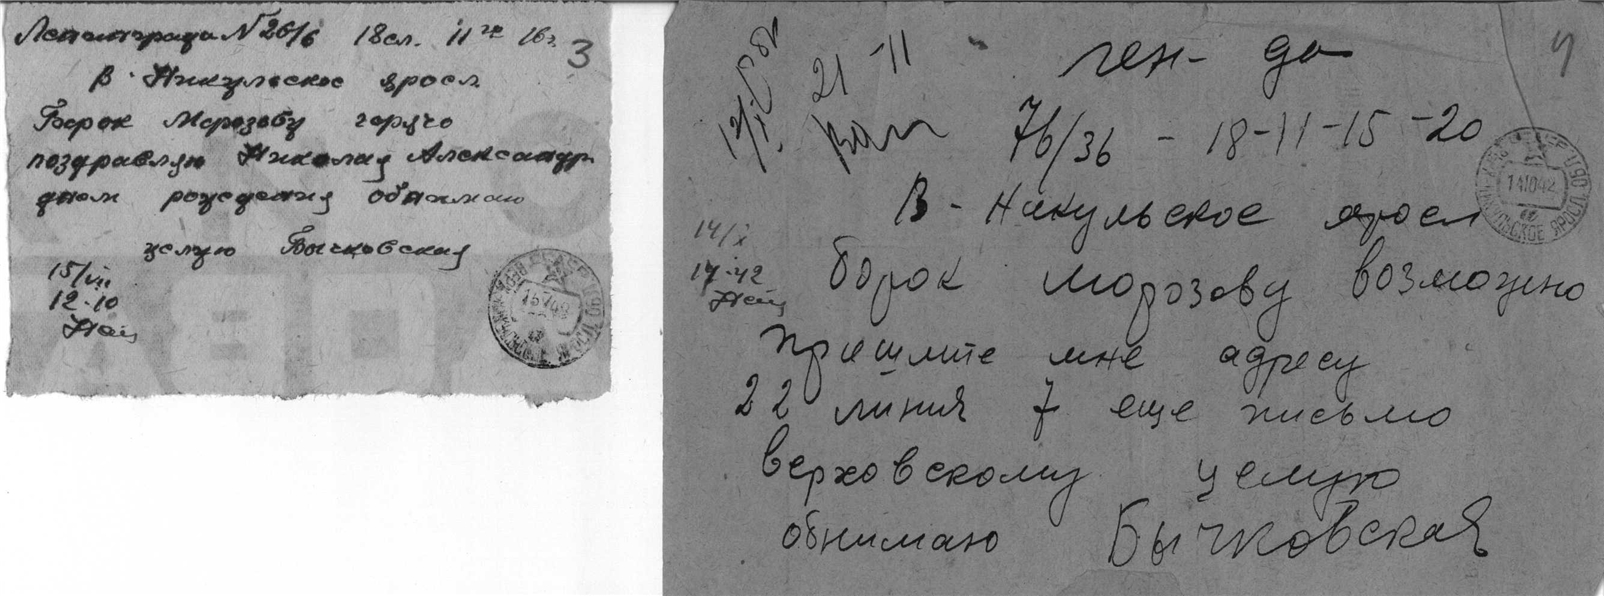 Ленинграда N 26/6 18сл. 11 го 16ч.
3
В-Никульское яросл
Борок Морозову горячо
поздравляю Николая Александр
днем рождения обнимаю
целую Бычковская
15/VII
12-10
4
ген- да
21 -11
76/36 - 18-11-15-20
В-Никульское яросл
14/X
14-42
борок морозову возможно
пришлите мне адресу
22 линия 7 еще письмо
верховскому целую
обнимаю Бычковская